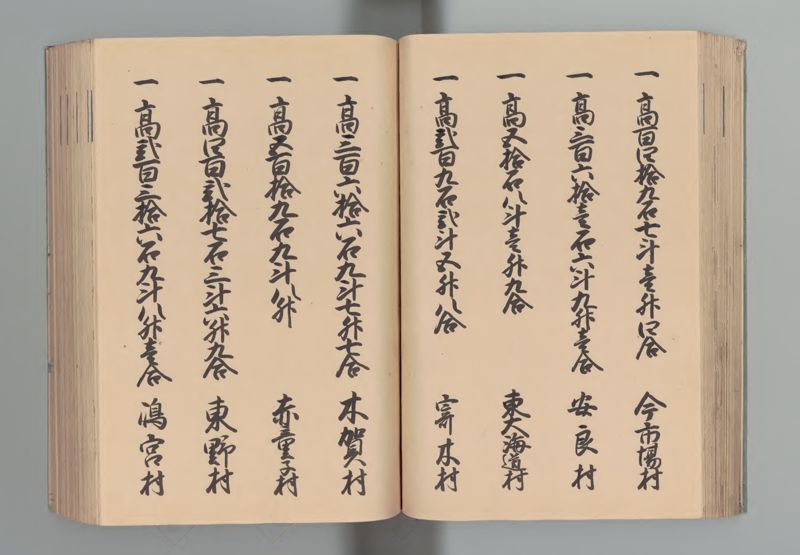 一 高百四拾九石七斗壹升四合 今市場村
一 高三百六拾壹石六斗九升壹合 安良村
一 高五拾石八斗壹升九合 東大海道村
一 高貳百九石貳斗五升八合 寄木村
一 高三百六拾六石九斗七升七合 木賀村
一 高五百拾九石九斗八升 赤童子村
一 高四百貳拾七石三斗六升九合 東野村
一 高貳百三拾六石九斗八升壹合 嶋宮村